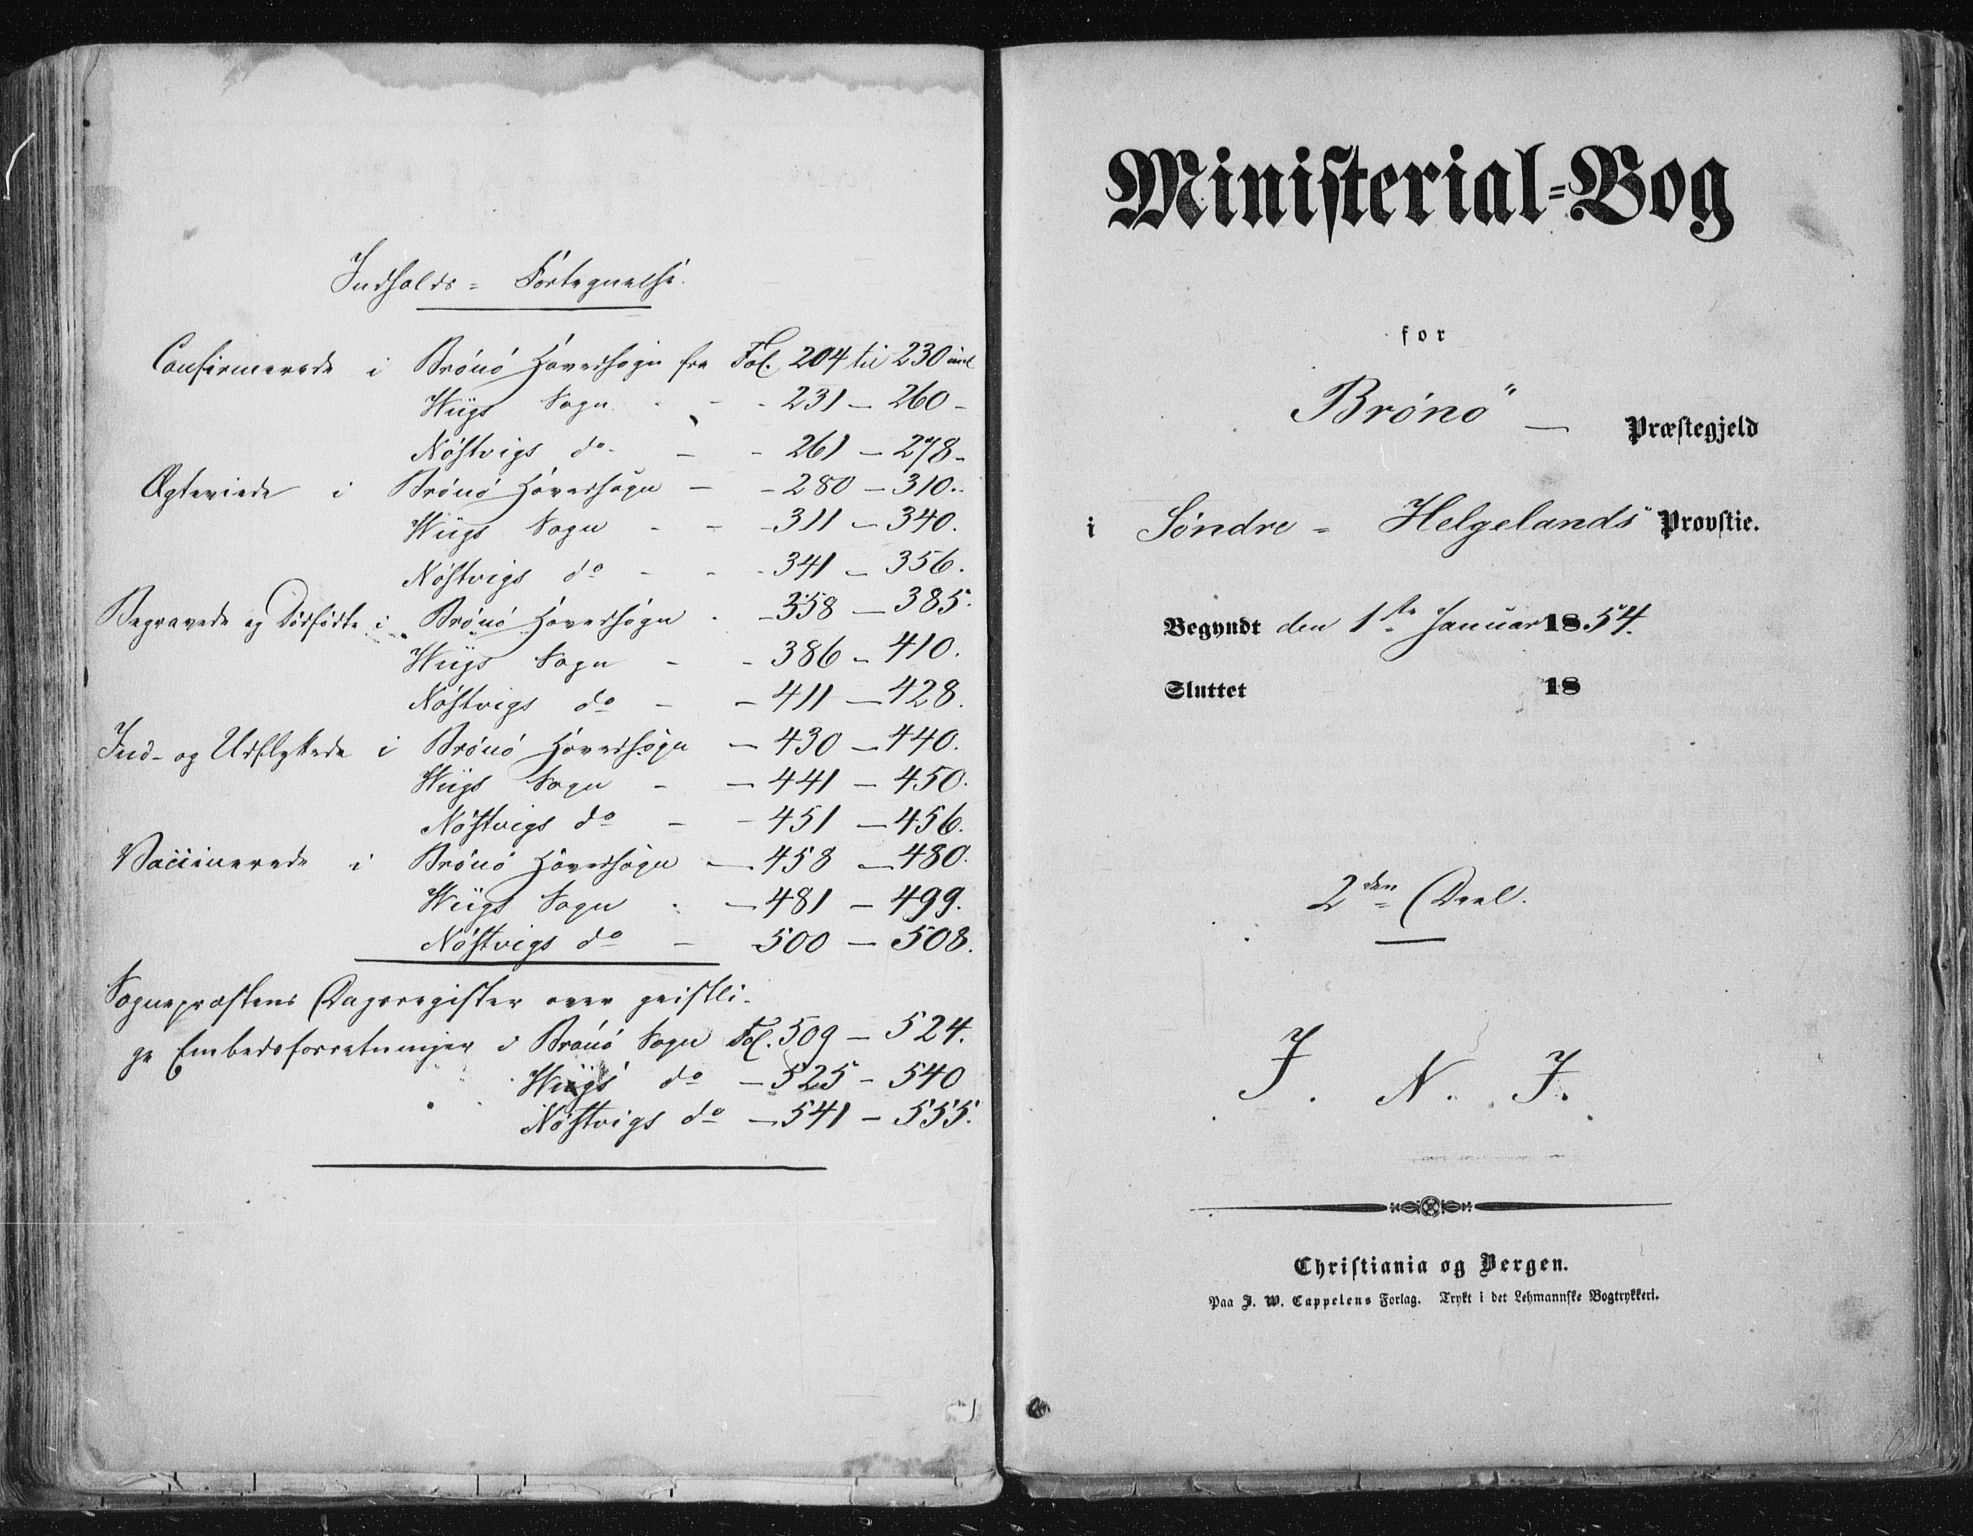 Indholds- Fortegnelse.
Confirmerede i Brönö Hovedsogn fra Fol. 204 til 230 incl
Wiigs Sogn - - - 231 - 260 -
Nöstvigs do - - - 261 - 278 -
Ægteviede i Brönö Hovedsogn - - 280 - 310.
Wiigs Sogn - - - 311 - 340.
Nöstvigs do - - - 341 - 356.
Begravede og Dödfödte i Brönö Hovedsogn - - 358 - 385.
Wiigs Sogn - - 386 - 410.
Nöstvigs do - - 411 - 428.
Ind- og Udflyttede i Brönö Hovedsogn - 430 - 440.
Wiigs Sogn - - 441 - 450.
Nöstvigs do - - 451 - 456.
Vaccinerede i Brönö Hovedsogn - 458 - 480.
Wiigs Sogn - - 481 - 499.
Nöstvigs do - 500 - 508.
Sognepræstens Dagsregister over geistli-
ge Embedsforretninger i Brönö Sogn Fol. 509 - 524.
Wiigs do - 525 - 540
Nöstvigs do - 541 - 555.
Ministerial-Bog
for
Brönö - Præstegjeld
i Söndre - Helgelands Provstie.
Begyndt den 1ste Januar 1854.
Sluttet 18
2den Deel.
I. N. J.
Christiania og Bergen.
Paa J. W. Cappelens Forlag. Trykt i det Lehmannske Bogtrykkeri.